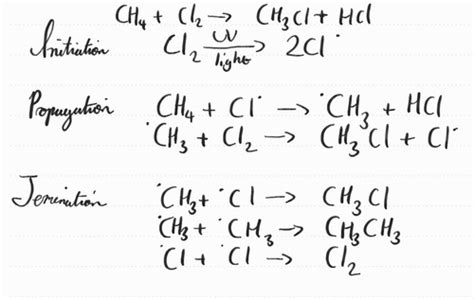 CH₄ + Cl₂ → CH₃Cl + HCl
Initiation Cl₂ UV light → 2Cl˙
Propagation CH₄ + Cl˙ → ˙CH₃ + HCl
˙CH₃ + Cl₂ → CH₃Cl + Cl˙
Termination ˙CH₃ + ˙Cl → CH₃Cl
˙CH₃ + ˙CH₃ → CH₃CH₃
˙Cl + ˙Cl → Cl₂